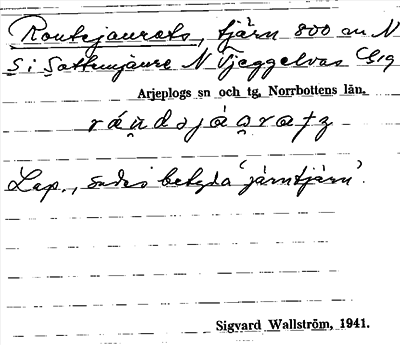 Routejaurets, tjärn 800 m N
S i Sattemjaure N Tjeggelvas
Arjeplogs sn och tg. Norrbottens län.
Lap., betyda 'järntjärn'.
Sigvard Wallström, 1941.